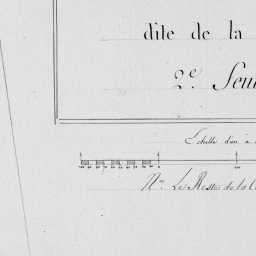 dite de la
2.e Feui
Echelle d'un a
N.a Le Reste de la C